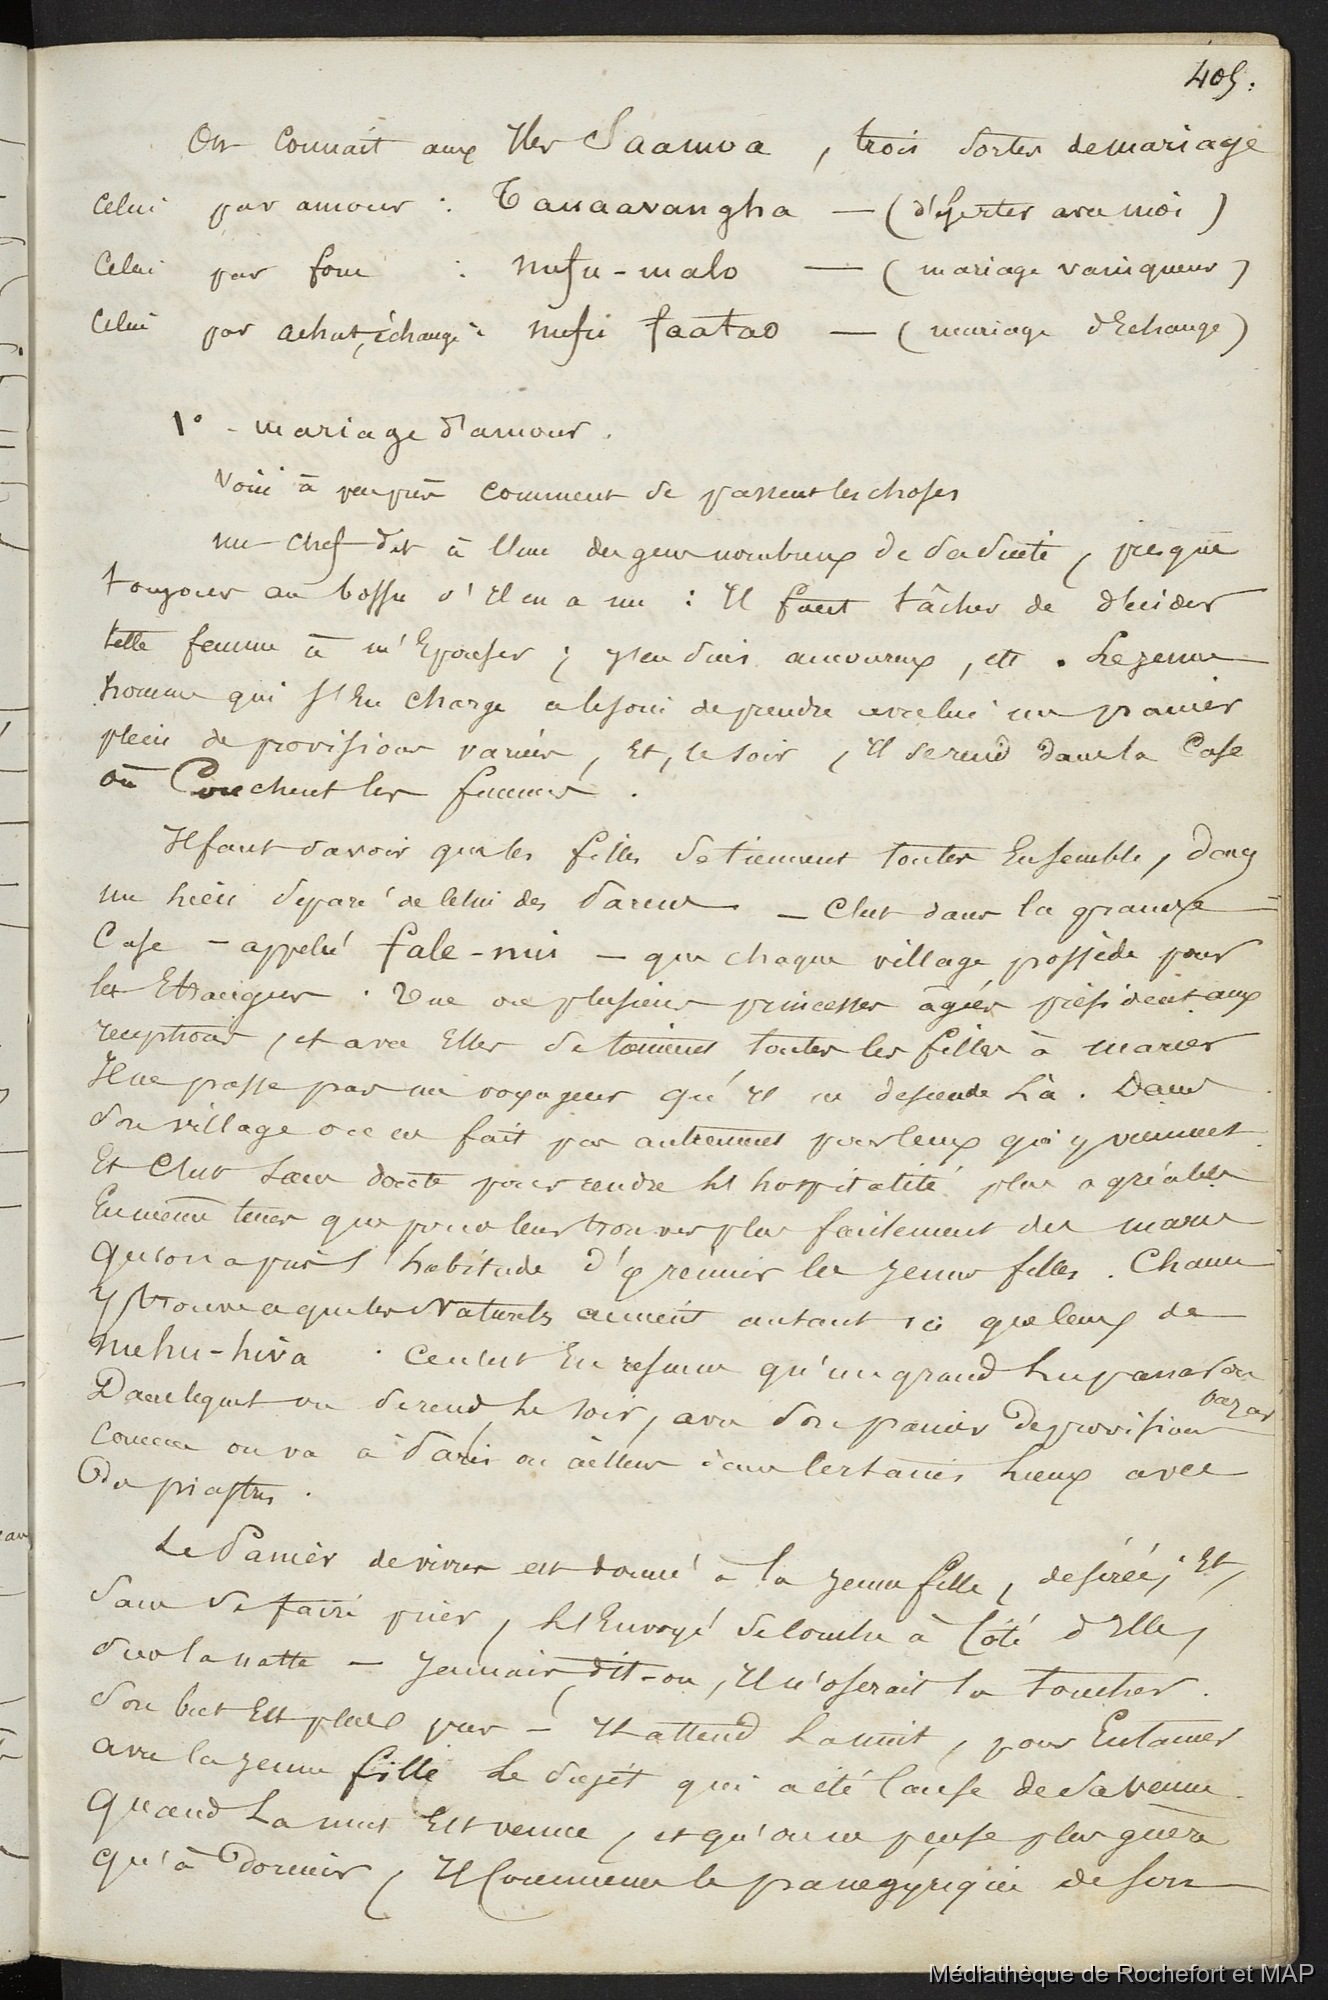 405.
On connait aux Iles Saamoa, trois sortes de mariage
celui par amour : Tanaavangha — (déserter avec moi)
Celui par force : nufu-malo — (mariage vainqueur)
Celui par achat, échange : nufu faatao — (mariage d'Echange)
1° - mariage d'amour.
Voici à peu près comment se passent les choses
un chef dit à l'un des gens nombreux de sa suite, presque
toujours au bossu s'il en a un : Il faut tâcher de décider
telle femme à m'Epouser ; j'en suis amoureux, etc. Le jeune
homme qui s'En charge a le soin de prendre avec lui un panier
plein de provisions variées, Et, le soir, Il se rend dans la Case
où Couchent les femmes.
Il faut savoir que les filles se tiennent toutes Ensemble, dans
un lieu séparé de celui des parens — C'est dans la grande
Case — appelée fale-nui — que chaque village possède pour
les Etrangers. Une ou plusieurs princesses âgées président aux
receptions, et avec Elles se tiennent toutes les filles à marier
Il ne passe pas un voyageur qu'Il ne descende Là. Dans
son village on en fait pas autrement pour ceux qui y viennent
Et C'est sans doute pour rendre L'hospitalité plus agréable
En même tems que pour leur trouver plus facilement des maris
qu'on a pris l'habitude d'y réunir les jeunes filles. Chacun
y trouve ce que les Naturels aiment autant ici que ceux de
nuhu-hiva. Ce n'est En resumé qu'un grand Lupanar ou
bazar
Dans lequel on se rend Le soir, avec son panier De provisions
comme on va à Paris ou ailleurs dans certains Lieux avec
Des piastres.
Le Panier de vivres est donné à la jeune fille, desirée ; Et,
sans se faire prier, L'Envoyé se couche à Côté d'Elle,
sur la natte — Jamais, dit-on, Il n'oserait la toucher.
Son but Est plus pur — Il attend La nuit, pour Entamer
avec la jeune fille Le sujet qui a été Cause de sa venue.
Quand La nuit Est venue, et qu'on ne pense plus guère
qu'à Dormir, Il Commence le panégyrique de son
Médiathèque de Rochefort et MAP